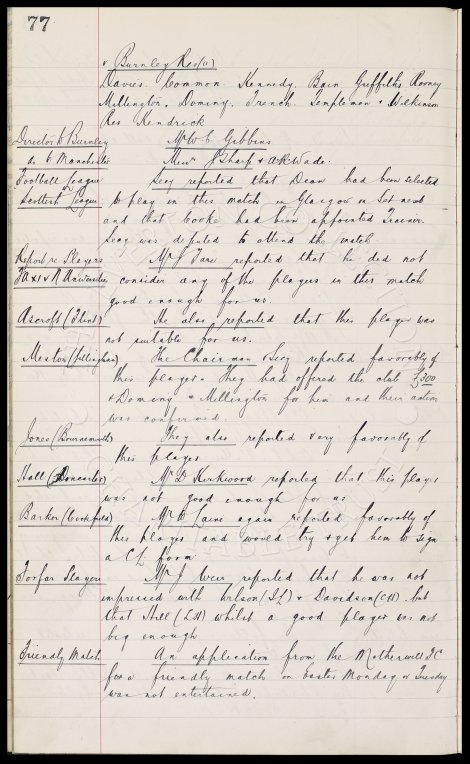 77
v Burnley Res (a)
Davies. Common. Kennedy. Bain Griffiths Rooney
Millington. Dominy. French. Templeman & Wilkinson
Res Kendrick
Director to Burnley Mr W C Gibbins
do to Manchester Messrs Sharp & A K Wade.
Football League
Scottish League
Secy reported that Dean had been selected
to play in this match in Glasgow on Sat next
and that Cooke had been appointed Trainer.
Secy was deputed to attend the match
Report re Players
Mr J Fare reported that he did not
consider any of the players in this match
good enough for us.
Ascroft (Flint) He also reported that this player was
not suitable for us.
Meston (Gillingham) The Chairman & Secy reported favorably of
this player. They had offered the club £300
& Dominy & Millington for him and their action
was confirmed.
Jones (Bournemouth) They also reported very favorably of
this player
Hall (Doncaster) Mr D Kirkwood reported that this player
was not good enough for us
Barker (Cuckfield) Mr C Laine again reported favorably of
this player and would try & get him to sign
a C L form
Forfar Players Mr J Weir reported that he was not
impressed with Wilson (I L) & Davidson (CH) but
that Hill (LH) whilst a good player was not
big enough
Friendly Match An application from the Motherwell F C
for a friendly match on Easter Monday or Tuesday
was not entertained.